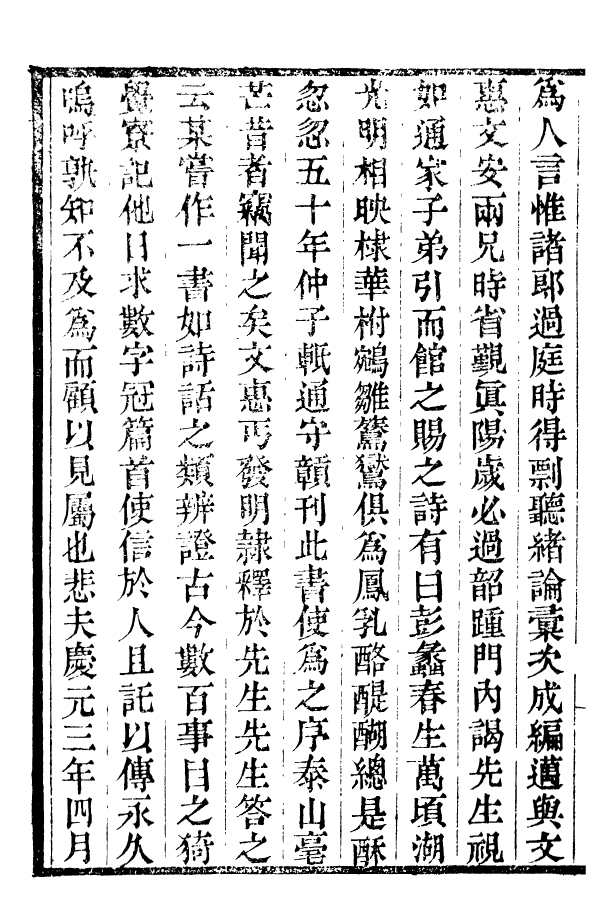 為人言惟諸郎過庭時得剽聽緒論彚次成編邁與文
惠文安兩兄時省覲眞陽歲必過韶踵門內謁先生視
如通家子弟引而館之賜之詩有曰彭蠡春生萬頃湖
光明相映棣華柎鵷雛鸑鷟俱爲鳳乳酪醍醐總是酥
忽忽五十年仲子軝通守贛刊此書使爲之序泰山毫
芒昔者竊聞之矣文惠丐發明隷釋於先生先生答之
云某嘗作一書如詩話之類辨證古今數百事目之猗
覺寮記他日求數字冠篇首使信於人且託以傳永久
嗚呼孰知不及爲而顧以見屬也悲夫慶元三年四月